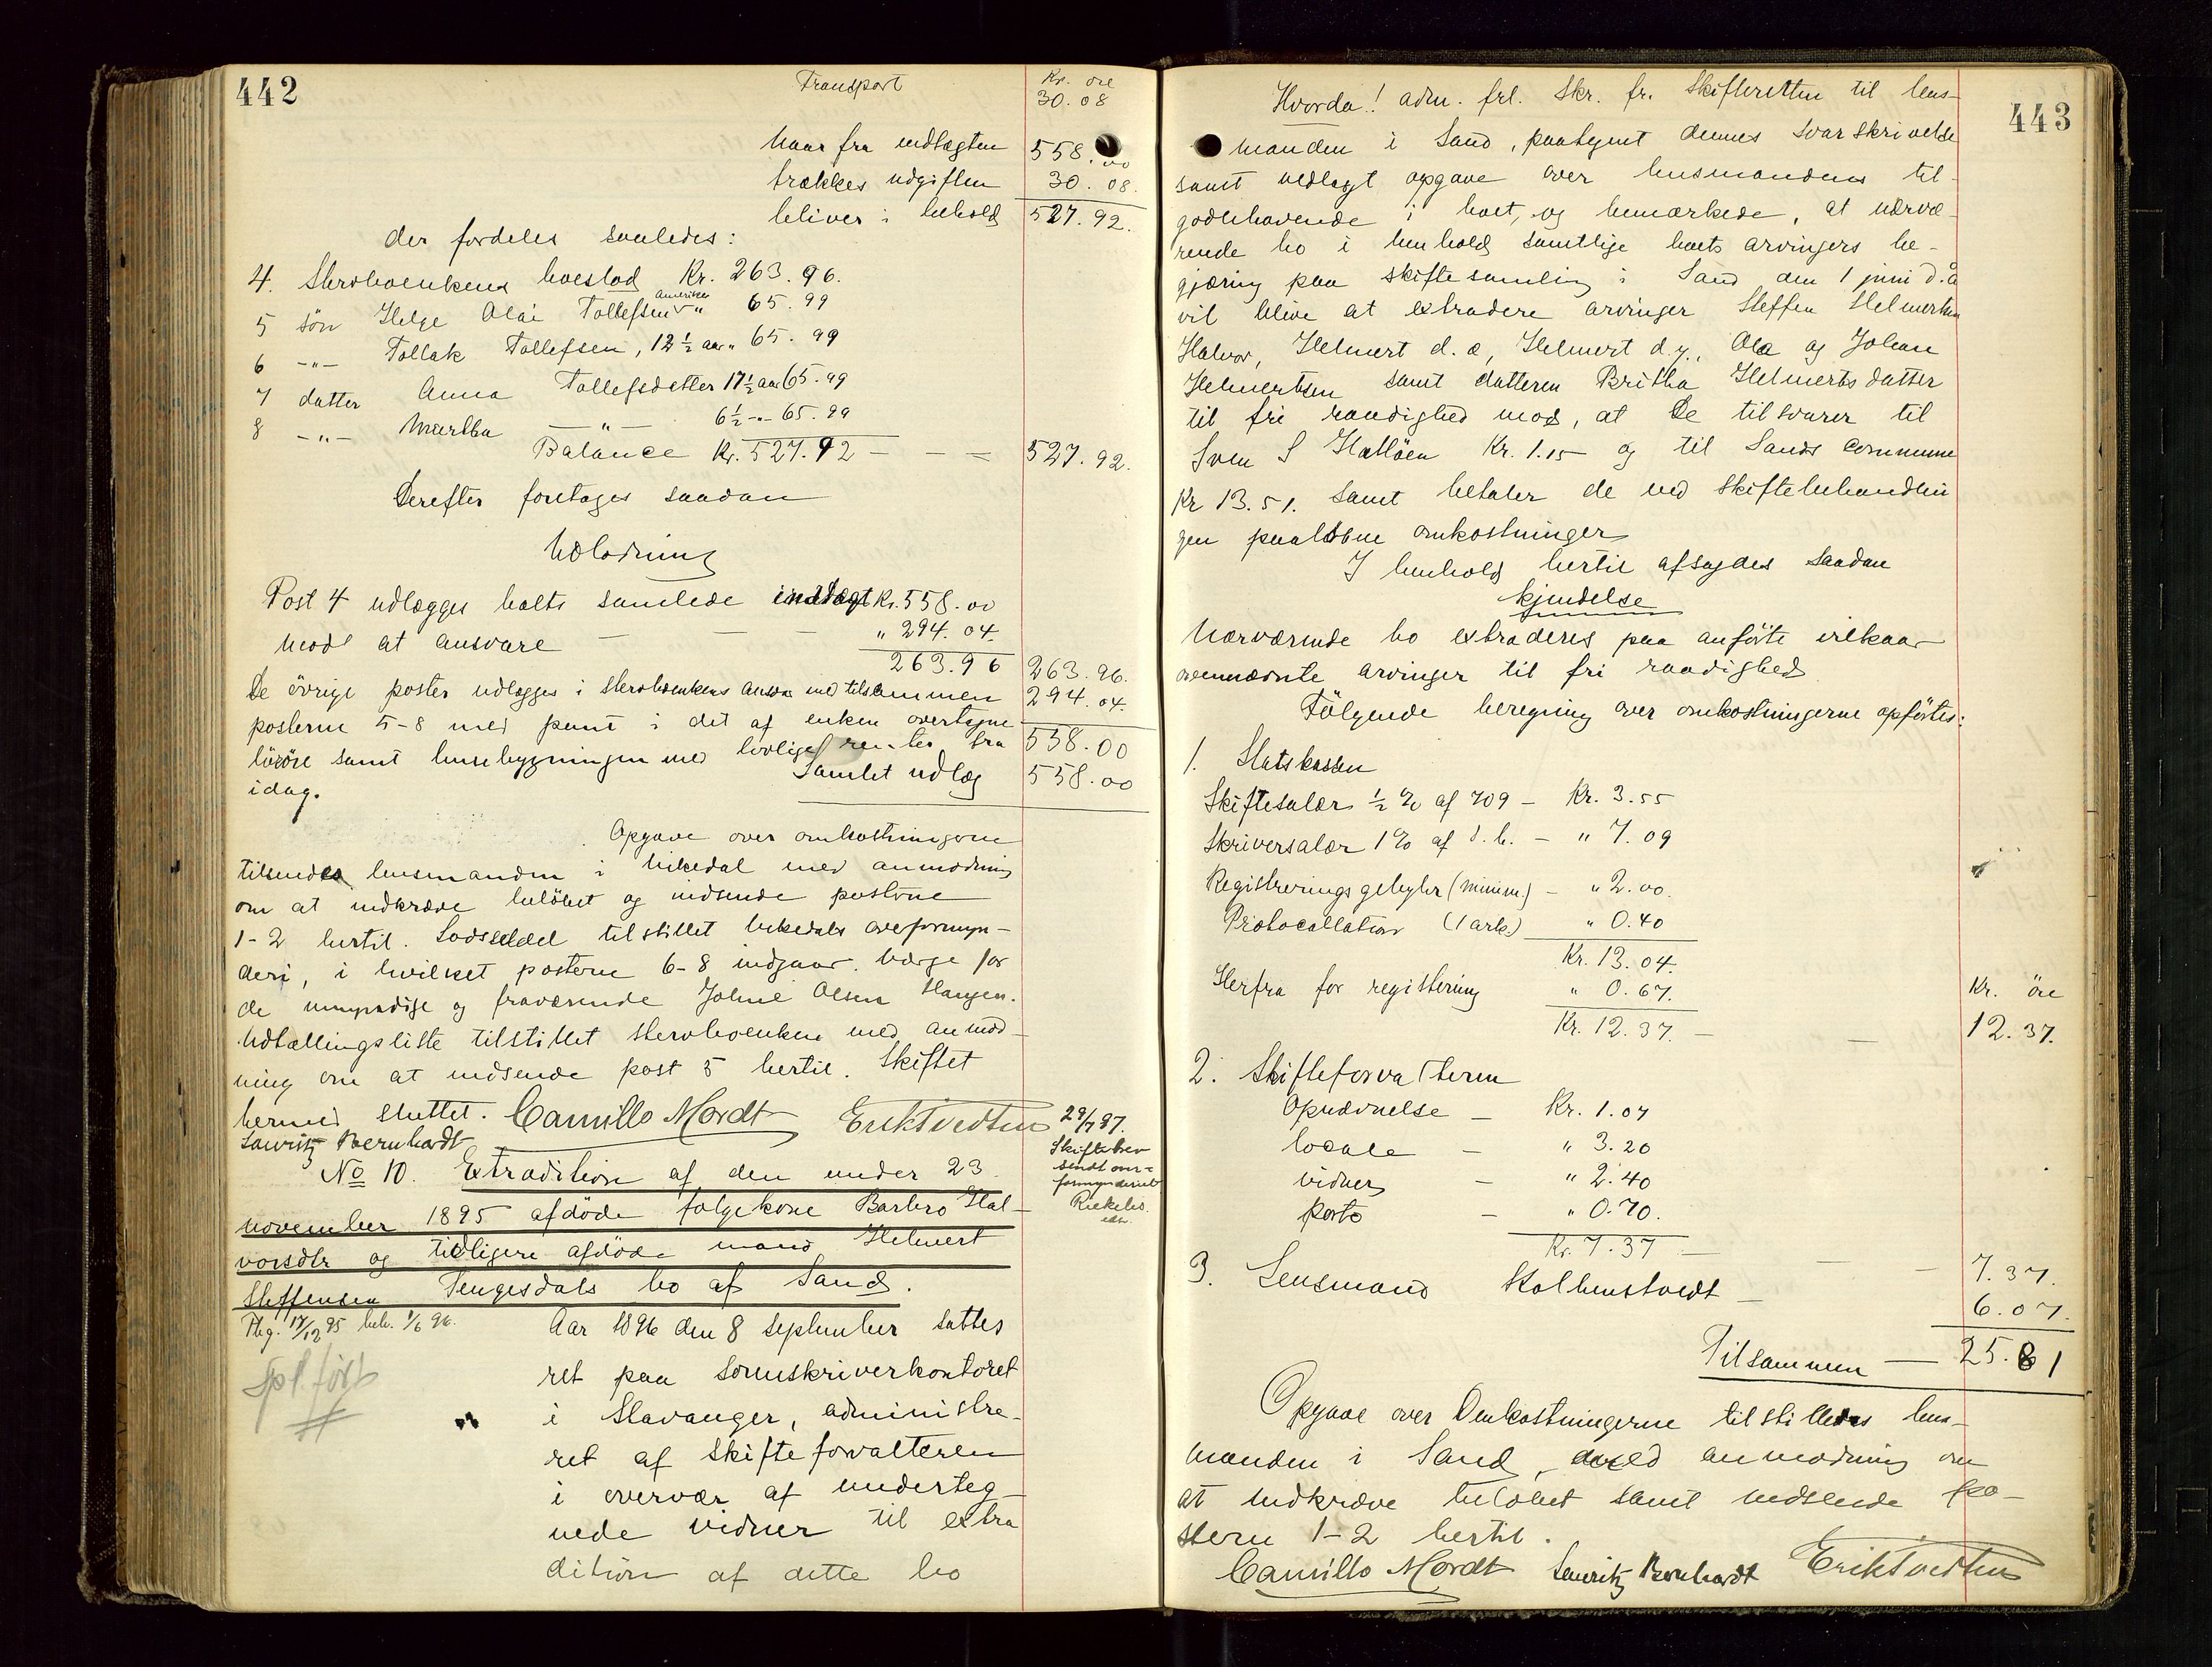 442
Transport
Kr. öre
30. 08
Naar fra indtægten 558.00
trækkes udgiften 30. 08.
bliver i behold 527. 92.
der fordeles saaledes:
4. Stervboenkens boeslod Kr. 263. 96.
5 sön Helge Olai Tollefsen Amerika " 65. 99
6 -"- Tollak Tollefsen, 12½ aar " 65. 99
7 datter Anna Tollefsdatter 17½ aar 65. 99
8 -"- Martha -"- 6½ -"- 65. 99
Balance Kr. 527. 92 - - - 527. 92.
Derefter foretages saadan
Udlodning
Post 4 udlægges boets samlede indtægt Kr. 558. 00
mod at ansvare - - - " 294. 04.
263. 96 263. 96.
De övrige poster udlægges i stervboenkens ansvar med tilsammen 294. 04.
posterne 5-8 med pant i det af enken overtagne
lösöre samt husebygningen med lovlige renter fra 558. 00
idag. Samlet udlæg 558. 00
Opgave over omkostningerne
tilsendes lensmanden i Vikedal med anmodning
om at indkræve belöbet og indsende posterne
1-2 hertil. Lodsseddel tilstillet Vikedals overformyn-
deri, i hvilket posterne 6-8 indgaar. Værge for
de umyndige og fraværende Johne Olsen Haugen.
Udtællingsliste tilstillet stervboenken med anmod-
ning om at indsende post 5 hertil. Skiftet
hermed sluttet. Camillo Mordt Erik Tvedten
Lauritz Bernhardt
29/7 97.
Skiftebrev
sendt over-
formynderiet
No 10. Extradition af den under 23
november 1895 afdöde fölgekone Barbro Hal-
vorsdtr og tidligere afdöde mand Helmert
Steffensen Tengesdals bo af Sand.
Thg. 17/12 95 beh. 1/6 96.
Aar 1896 den 8 september sattes
ret paa sorenskriverkontoret
i Stavanger, administre-
ret af skifteforvalteren
i overvær af underteg-
nede vidner til extra
dition af dette bo
443
Hvorda! adm. frl. Skr. fr. Skifteretten til lens-
manden i Sand, paategnet dennes svarskrivelse
samt vedlagt opgave over lensmandens til-
godehavende i boet, og bemærkede, at nærvæ-
rende bo i henhold samtlige boets arvingers be-
gjæring paa skiftesamling i Sand den 1 juni d.å
vil blive at extradere arvinger Steffen Helmertsen
Halvor, Helmert d. æ, Helmert d. y., Ola og Johan
Helmertsen samt datteren Britha Helmertsdatter
til fri raadighed mod, at de tilsvarer til
Sven S Hatlöen Kr. 1.15 og til Sands commune
Kr 13. 51. samt betaler de ved skiftebehandlin
gen paalöbne omkostninger
I henhold hertil afsagdes saadan
kjendelse
Nærværende bo extraderes paa anförte vilkaar
ovennævnte arvinger til fri raadighed
Fölgende beregning over omkostningerne opförtes:
1. Statskassen
Skiftesalær ½ % af 709 - Kr. 3. 55
Skriversalær 1 % af s. b. - " 7. 09
Registreringsgebyhr (minim.) - " 2. 00.
Protocollation (1 ark.) " 0. 40
Kr. 13. 04.
Herfra for registering " 0. 67.
Kr. öre
Kr. 12. 37. - - 12. 37.
2. Skifteforvalteren
Opnævnelse - Kr. 1. 07
locale - " 3. 20
vidner - " 2. 40
porto - " 0. 70.
Kr. 7. 37 - - - 7. 37.
3. Lensmand Kolbenstvedt - 6. 07.
Tilsammen - 25. 81
Opgave over Omkostningerne tilstilledes lens-
manden i Sand, med anmodning om
at indkræve belöbet samt indsende po-
sterne 1-2 hertil.
Camillo Mordt Lauritz Bernhardt Erik Tvedten